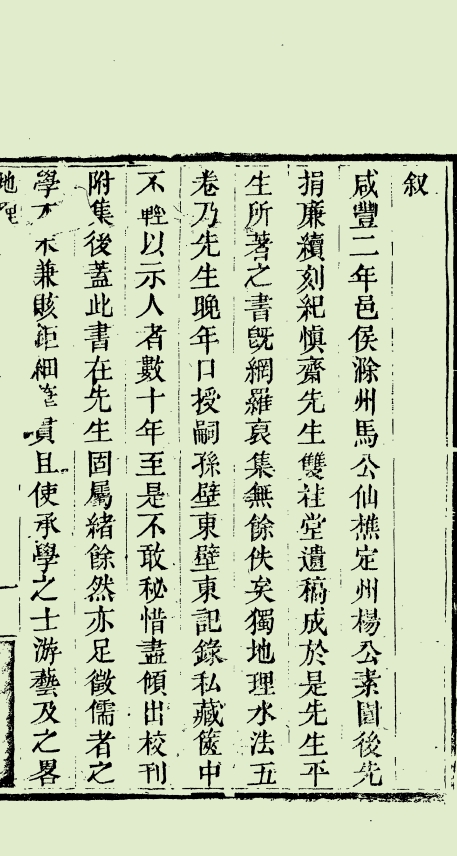 叙
咸豐二年邑侯滁州馬公仙樵定州楊公素園後先
捐廉續刻紀慎齋先生雙桂堂遺稿成於是先生平
生所著之書既網羅裒集無餘佚矣獨地理水法五
卷乃先生晚年口授嗣孫壁東壁東記錄私藏篋中
不輕以示人者數十年至是不敢秘惜盡傾出校刊
附集後蓋此書在先生固屬緒餘然亦足徵儒者之
學 不兼賅鉅細 貫且使承學之士游藝及之畧
地理
一